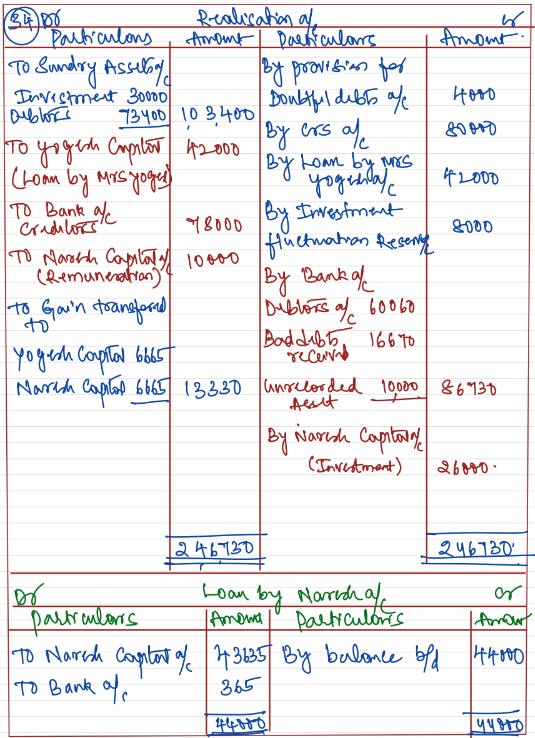 34 Dr Realisation a/c Cr
Particulars Amount Particulars Amount
To Sundry Assets a/c
Investment 30000
Debtors 73400 103400
To Yogesh Capital 42000
(Loan by Mrs Yogesh)
To Bank a/c
Creditors 78000
To Naresh Capital a/c 10000
(Remuneration)
To Gain transfered
to
Yogesh Capital 6665
Naresh Capital 6665 13330
246730
By provision for
Doubtful debts a/c 4000
By crs a/c 80000
By Loan by mrs
yogesh a/c 42000
By Investment
fluctuation Reserve 8000
By Bank a/c
Debtors a/c 60060
Bad debts 16670
received
Unrecorded 10,000 86730
Asset
By Naresh Capital a/c
(Investment) 26000.
246730.
Dr Loan by Naresh a/c Cr
Particulars Amount Particulars Amount
To Naresh Capital a/c 43635 By balance b/d 44000
To Bank a/c 365
44000 44000